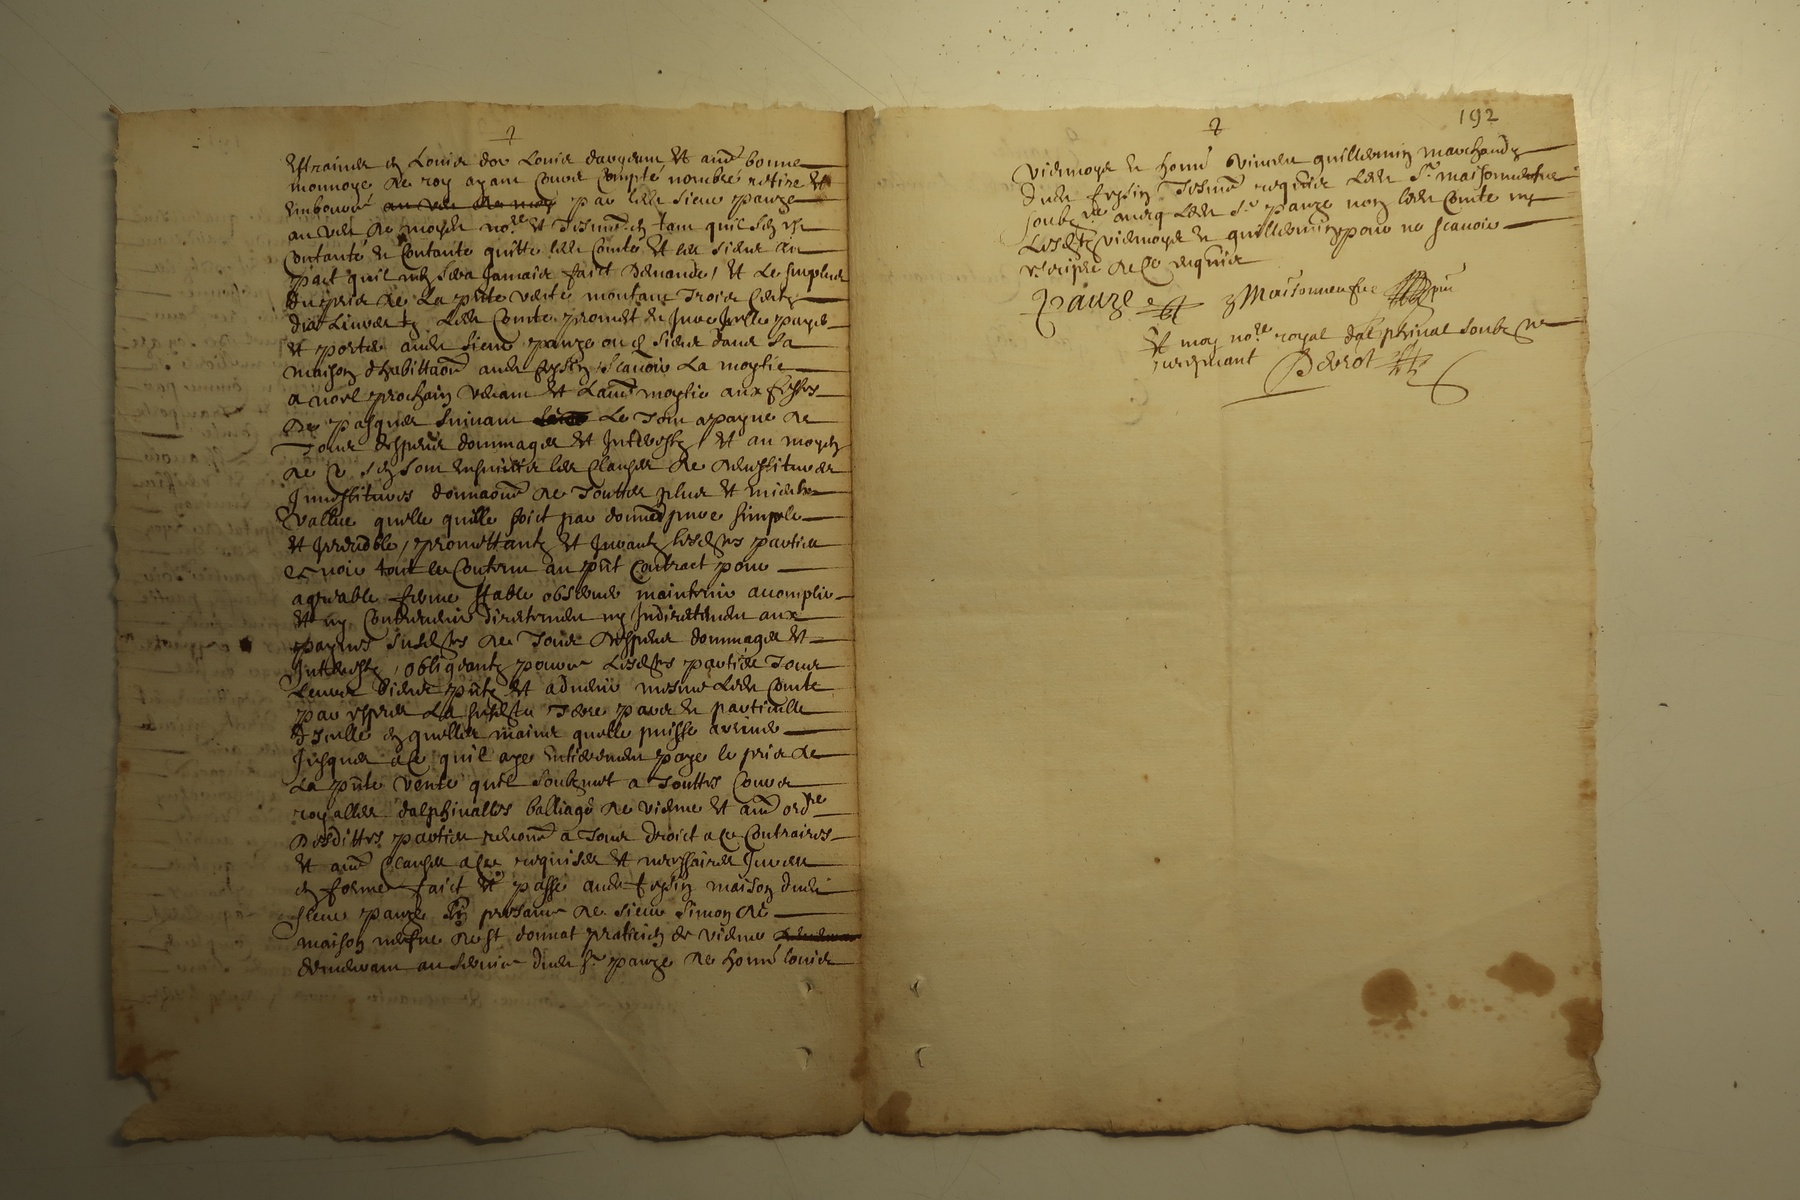 estraines en Louis dor Louis dargent et autre bonne
monnoye de roy ayant cours compté nombré retiré et
emboursé au veu de moy par ledit sieur pauze
au veu de moydit no.re et tesmoins en tant quil sen est
contanté en contante quitte ledit Comte et les siens en
pact quil nen sera jamais faict demande / et le surplus
du pris de la pnte vente montant Trois Centz
dix Livres tz ledit Comte promet et jure icelle payer
et porter audit sieur pauze ou es siens dans sa
maison dhabittaon audit feysin scavoir La moytie
a noel prochain venant et Lautre moytie aux festes
de pasques suivant Le tout a payne de
Tous despens dommages et Interestz / et au moyen
de ce sen sont ensuivies les clauses de devestitures
Investitures donnaons de Touttes plus et mieux
vallue quelle quelle soict par donnaon pure simple
et Irrevocable / promettantz et Jurantz lesdites parties
avoir tout le contenu au pnt contract pour
agreable ferme stable observer maintenir accomplir
et ny contrevenir directement ny Indirectement aux
paynes susdites de Tous despens dommages et
Interestz / obligeantz pource lesdites parties Tous
Leurs biens pntz et advenir mesme ledit Comte
par expres La susdite Terre pacte en particulier
en quelles mains quelle puisse arriver
Jusques a ce quil aye entierement paye le pris de
La pnte vente quil soubzmet a Touttes Cours
royalles dalphinalles balliage de vienne et autre ordre
desdittes parties renonce a Tous droict a ce contraires
et autre clauses a ce requises et necessaires
en forme faict et passé audit feysin maison dudit
sieur pauze en presance de sieur Simon de
maison neufve de st donnat praticien de vienne
demeurant au service dudit Sr pauze de honn louis
2
192
viennoys et honn vincen guillermin marchandz
dudit feysin tesmoins requis ledit Sr maisonneufve
soubzne avecq ledit Sr pauze non ledit Comte ny
lesdtz viennoys et guillermin pour ne scavoir
escripre de ce requis
Pauze Maisonneufve pnt
Et moy no.re royal dalphinal soubz ne
recepvant Berot